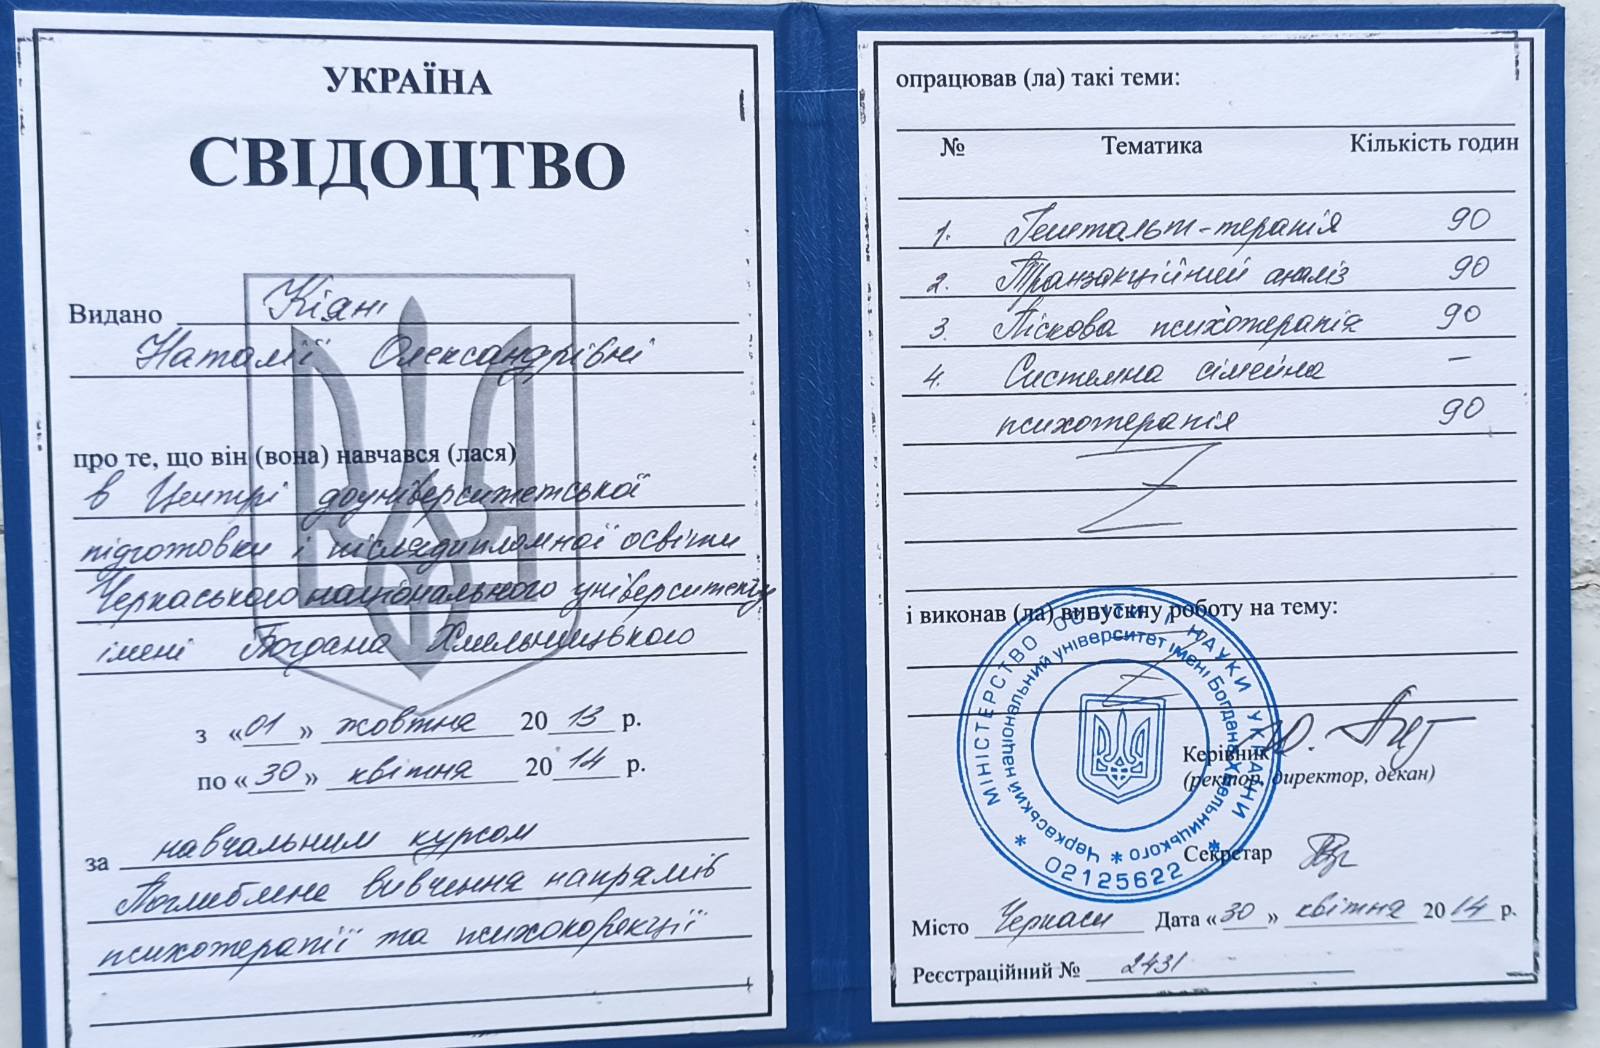 УКРАЇНА
СВІДОЦТВО
Видано Кіяні
Наталії Олександрівні
про те, що він (вона) навчався (лася)
в Центрі доуніверситетської
підготовки і післядипломної освіти
Черкаського національного університету
імені Богдана Хмельницького
з «01» жовтня 2013 р.
по «30» квітня 2014 р.
за навчальним курсом
Поглиблене вивчення напрямів
психотерапії та психокорекції
опрацював (ла) такі теми:
№ Тематика Кількість годин
1. Гештальт-терапія 90
2. Транзакційний аналіз 90
3. Піскова психотерапія 90
4. Системна сімейна –
психотерапія 90
і виконав (ла) випускну роботу на тему:
МІНІСТЕРСТВО ОСВІТИ І НАУКИ УКРАЇНИ
Черкаський національний університет імені Богдана Хмельницького
* 02125622 *
Керівник
(ректор, директор, декан)
Секретар
Місто Черкаси Дата «30» квітня 2014 р.
Реєстраційний № 2431